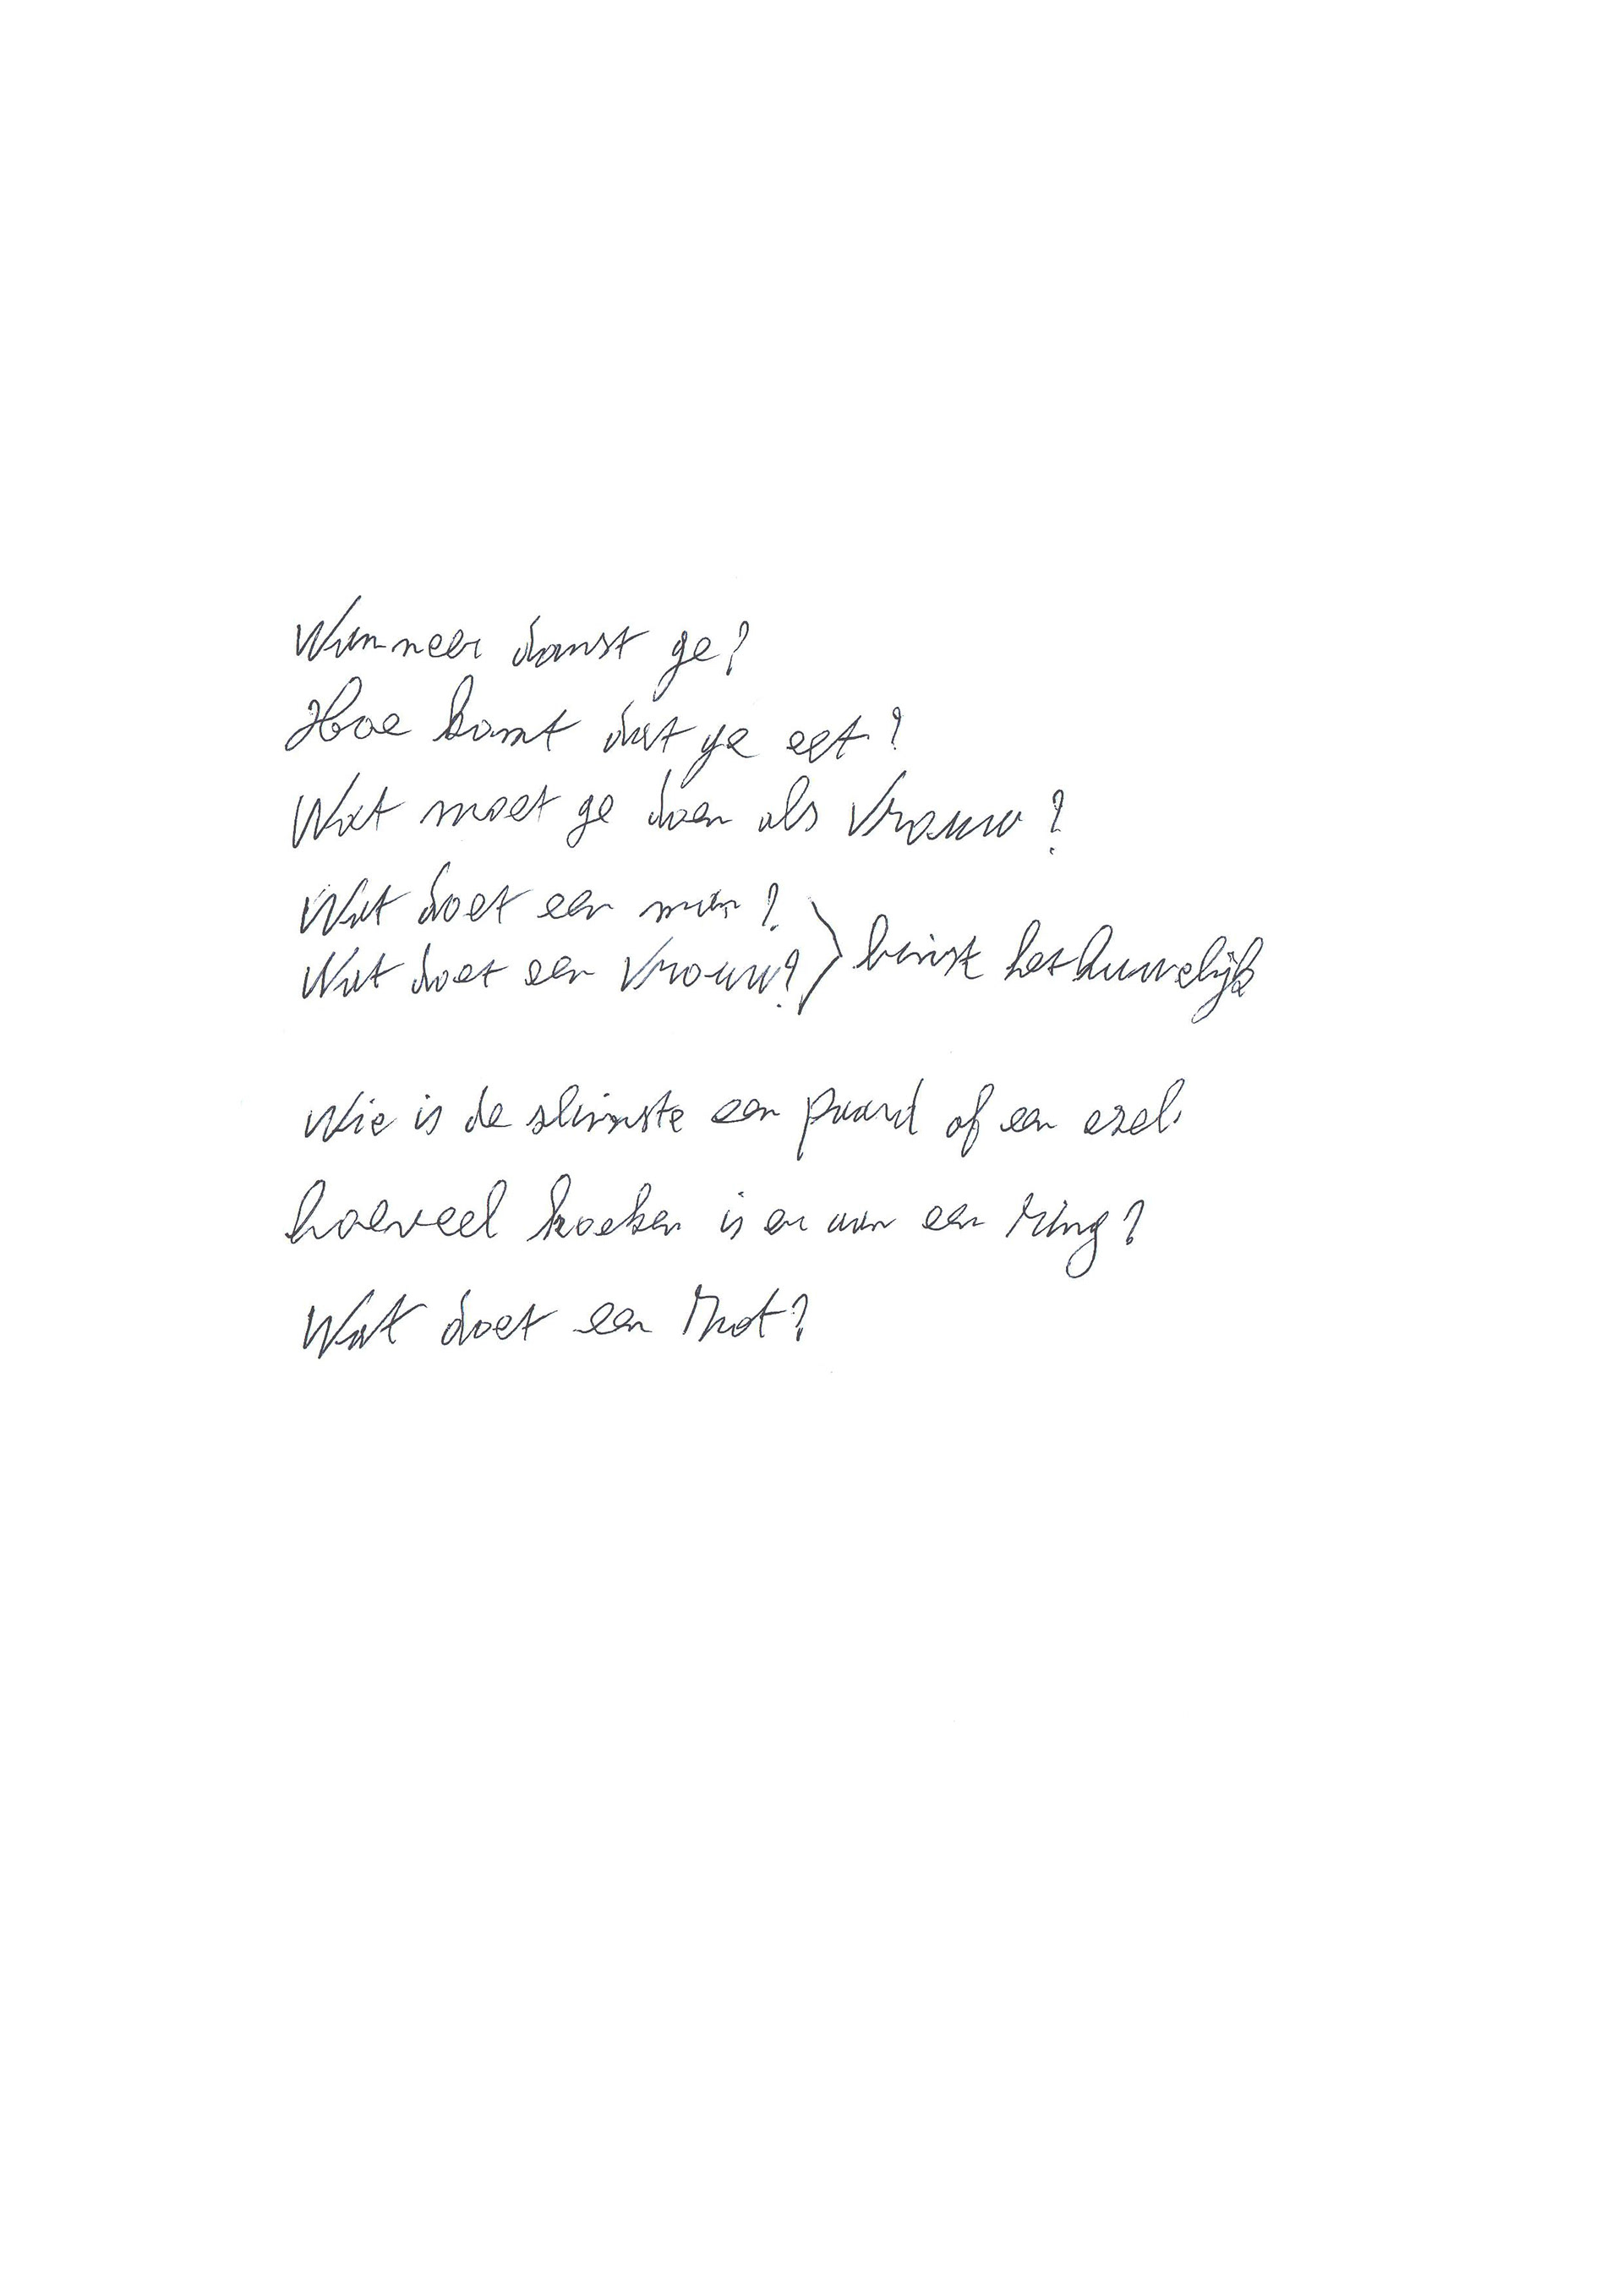 Wanneer danst ge?
Hoe komt dat ge eet?
Wat moet ge doen als Vrouw?
Wat doet een man?
Wat doet een Vrouw? } binst het huwelijk
Wie is de slimste een paard of een ezel.
hoeveel hoeken is er aan een Ring?
Wat doet een